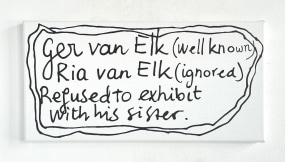 Ger van Elk (well known)
Ria van Elk (ignored)
Refused to exhibit
with his sister.